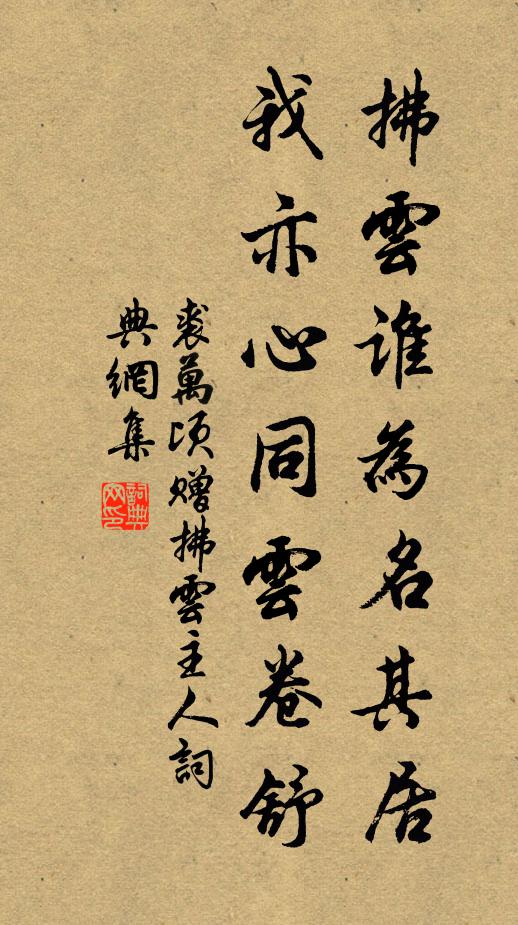 拂雲誰為名其居
我亦心同雲卷舒
裘萬頃贈拂雲主人詞
典網集
詞典
网印